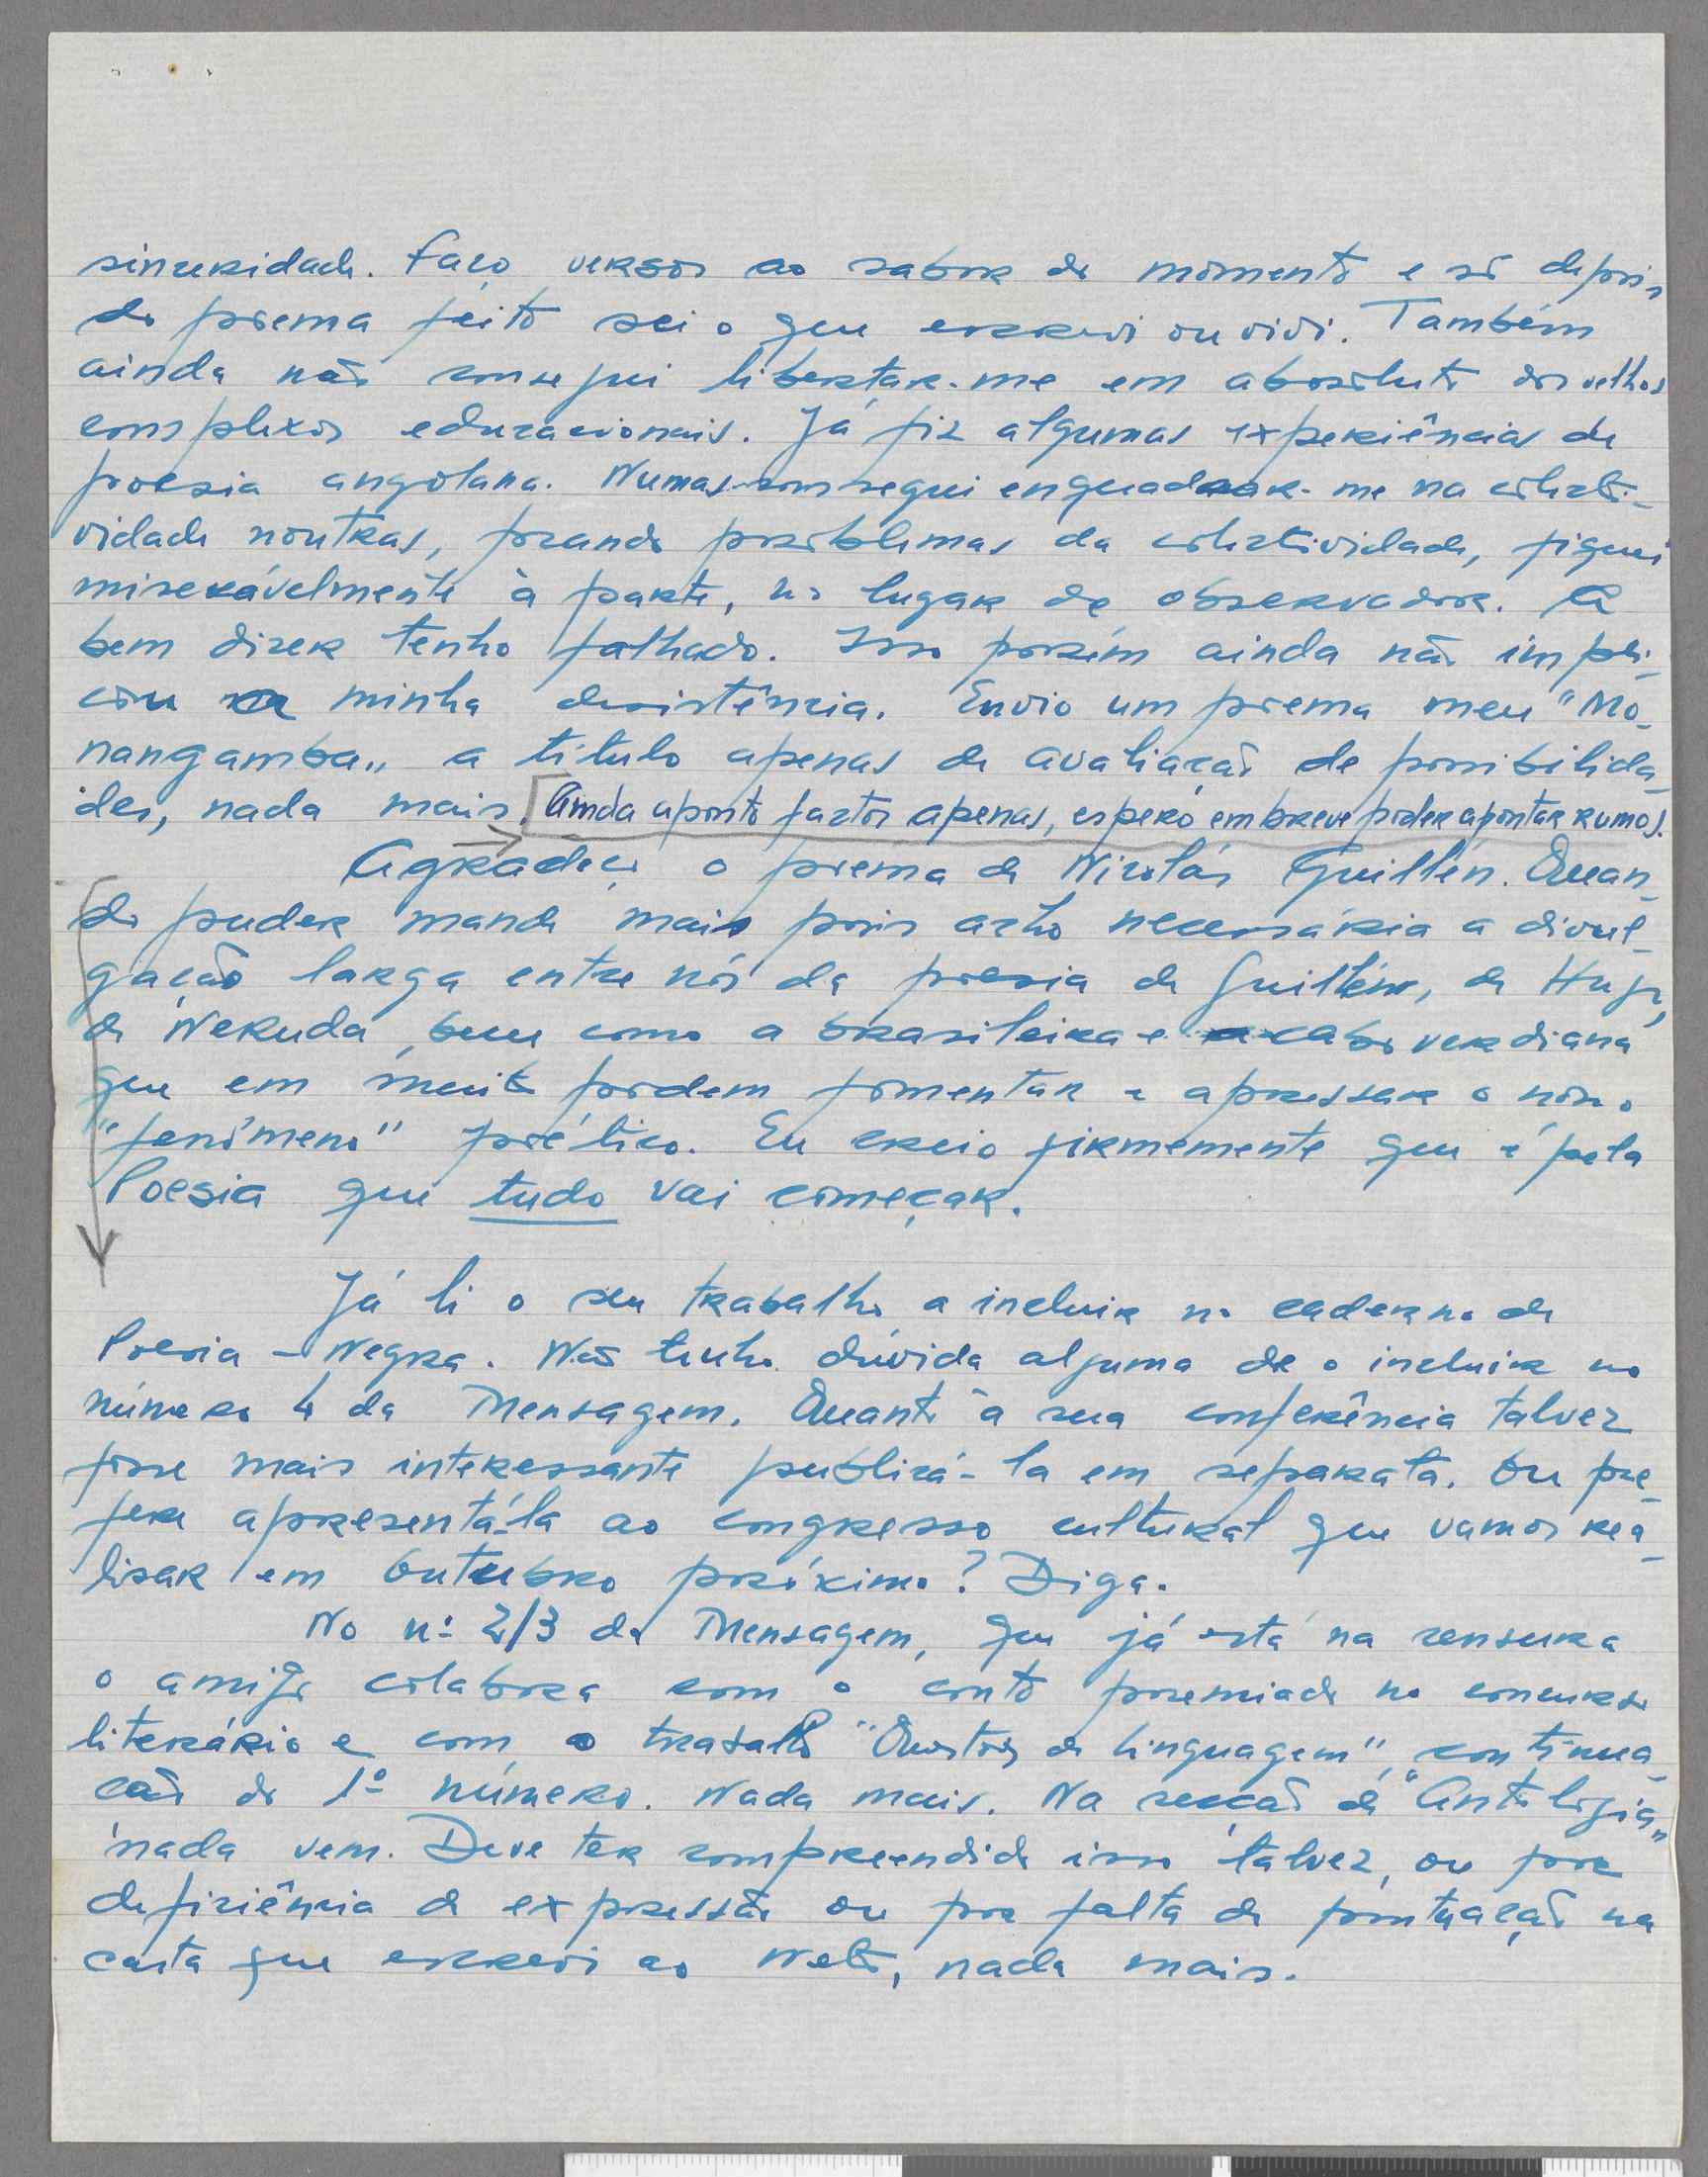 sinceridade. Faço versos ao sabor do momento e só depois
do poema feito sei o que escrevi ou vivi. Também
ainda não consegui libertar-me em absoluto dos velhos
complexos educacionais. Já fiz algumas experiências de
poesia angolana. Numas consegui enquadrar-me na colecti-
vidade noutras, focando problemas da colectividade, fiquei
miserávelmente à parte, no lugar de observador. A
bem dizer tenho falhado. Isso porém ainda não impli-
cou a minha desistência. Envio um poema meu "Mo-
nangamba" a título apenas de avaliação de possibilida-
des, nada mais. Ainda aponto factos apenas, espero em breve poder apontar rumos.
Agradeço o poema de Nicolás Guillén. Quan-
do puder mande mais pois acho necessária a divul-
gação larga entre nós da poesia de Guillén, de Hugo,
de Neruda, bem como a brasileira e a cabo verdiana
que em muito podem fomentar e apressar o nosso
"fenómeno" poético. Eu creio firmemente que é pela
Poesia que tudo vai começar.
Já li o seu trabalho a incluir no caderno de
Poesia - Negra. Não tenho dúvida alguma de o incluir no
número 4 da Mensagem. Quanto à sua conferência talvez
fosse mais interessante publicá-la em separata. Ou pre-
fere apresentá-la ao congresso cultural que vamos rea-
lisar em Outubro próximo? Diga.
No nº 2/3 da Mensagem, que já está na censura
o amigo colabora com o conto premiado no concurso
literário e com o trabalho "Questões de Linguagem", continua-
ção do 1º número. Nada mais. Na secção de "Antologia"
nada vem. Deve ter compreendido isso talvez, ou por
deficiência de expressão ou por falta de pontuação na
carta que escrevi ao Neto, nada mais.